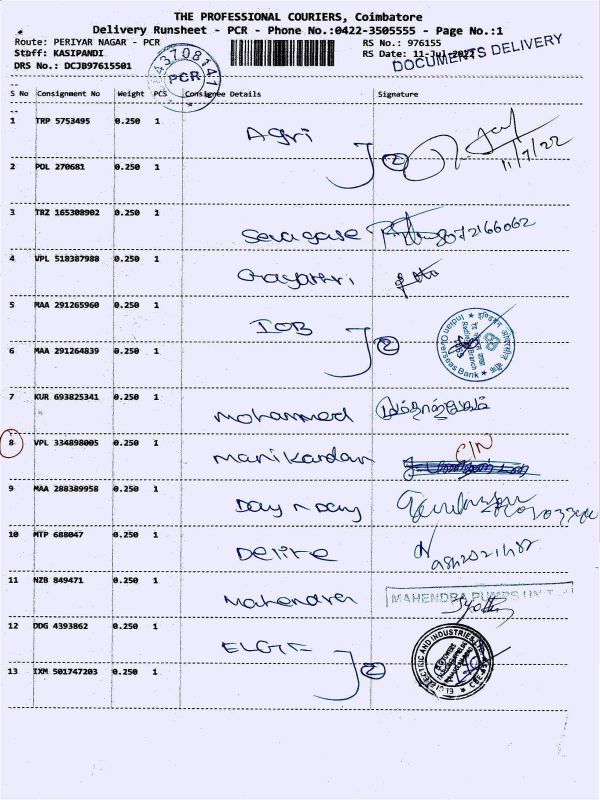 THE PROFESSIONAL COURIERS, Coimbatore
Delivery Runsheet - PCR - Phone No.:0422-3505555 - Page No.:1
Route: PERIYAR NAGAR - PCR RS No.: 976155
Staff: KASIPANDI RS Date: 11-Jul-2022
DRS No.: DCJB97615501
DOCUMENTS DELIVERY
43708141
PCR
S No Consignment No Weight PCS Consignee Details Signature
1 TRP 5753495 0.250 1 Agri
2 POL 270681 0.250 1
2 11/7/22
3 TRZ 165308902 0.250 1 8072166062
4 VPL 518387988 0.250 1 Gayathri
5 MAA 291265960 0.250 1 IOB
6 MAA 291264839 0.250 1 2
Indian Overseas Bank
7 KUR 693825341 0.250 1 Mohammed
8 VPL 334898005 0.250 1 Manikandan C/N
9 MAA 288389958 0.250 1 Day n Day
10 MTP 688047 0.250 1 Delite
11 NZB 849471 0.250 1 Mahendra MAHENDRA PUMPS UNIT
12 DDG 4393862 0.250 1 ELGI
13 IXM 501747203 0.250 1 2
ELGI ELECTRIC AND INDUSTRIES LTD